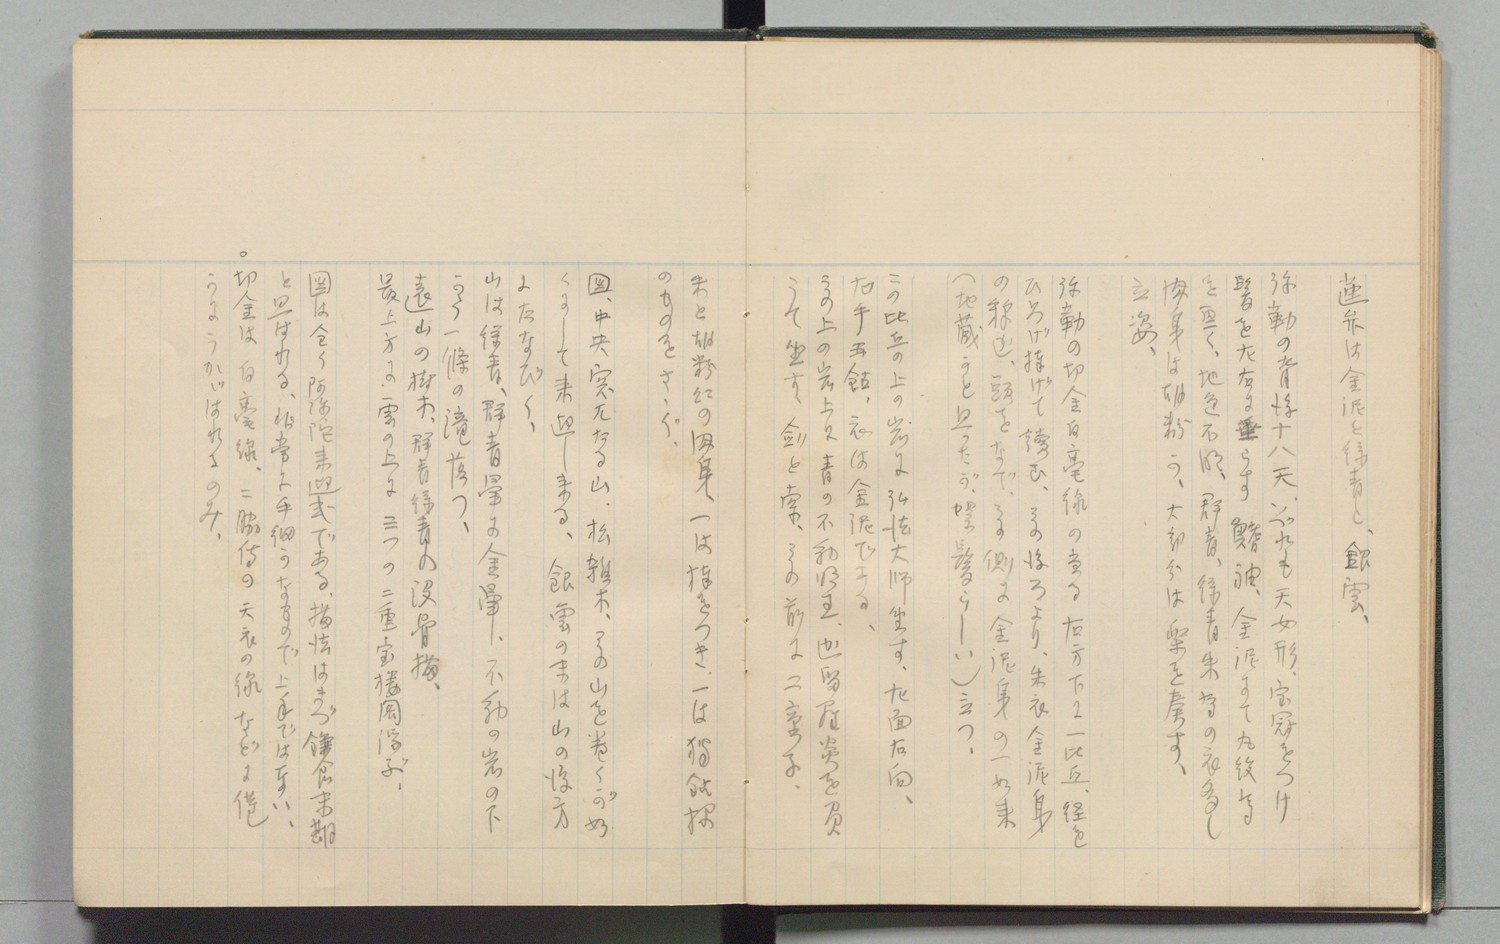 蓮弁は金泥と緑青と、銀雲、
弥勒の背後十八天、いづれも天女形、宝冠をつけ
髻を左右に垂らす 鰭袖、金泥にて丸紋等
を置く、地色不明、群青、緑青朱等の衣多し
肉身は胡粉か、大部分は楽を奏す、
立姿、
弥勒の切金白毫線の当る右方下に一比丘、経を
ひろげ捧げて読む、その後ろより、朱衣金泥身
の 頭をなで、その側に金泥身の一如来
(地蔵かと思ったが、螺髪らしい)立つ、
この比丘の上の岩に弘法大師坐す、左面右向、
右手五鈷、衣は金泥である、
その上の岩上に青の不動明王、迦留羅炎を負
うて坐す 剣と索、その前に二童子、
朱と胡粉紅の肉身、一は棒をつき、一は独鈷様
のものをささぐ、
図、中央 なる山、松雑木、その山を巻くが如
くにして来迎し来る、銀雲の末は山の後方
にたなびく、
山は緑青、群青暈に金暈し、不動の岩の下
から一條の滝落つ、
遠山の樹木、群青緑青の没骨描、
最上方に雲の上に三つの二重宝楼閣浮ぶ、
図は全く阿弥陀来迎式である、描法はまづ鎌倉末期
と思はれる、非常に手細かなもので上手ではない、
。切金は白毫線、二脇侍の天衣の線などに僅
かにうかがはれるのみ、